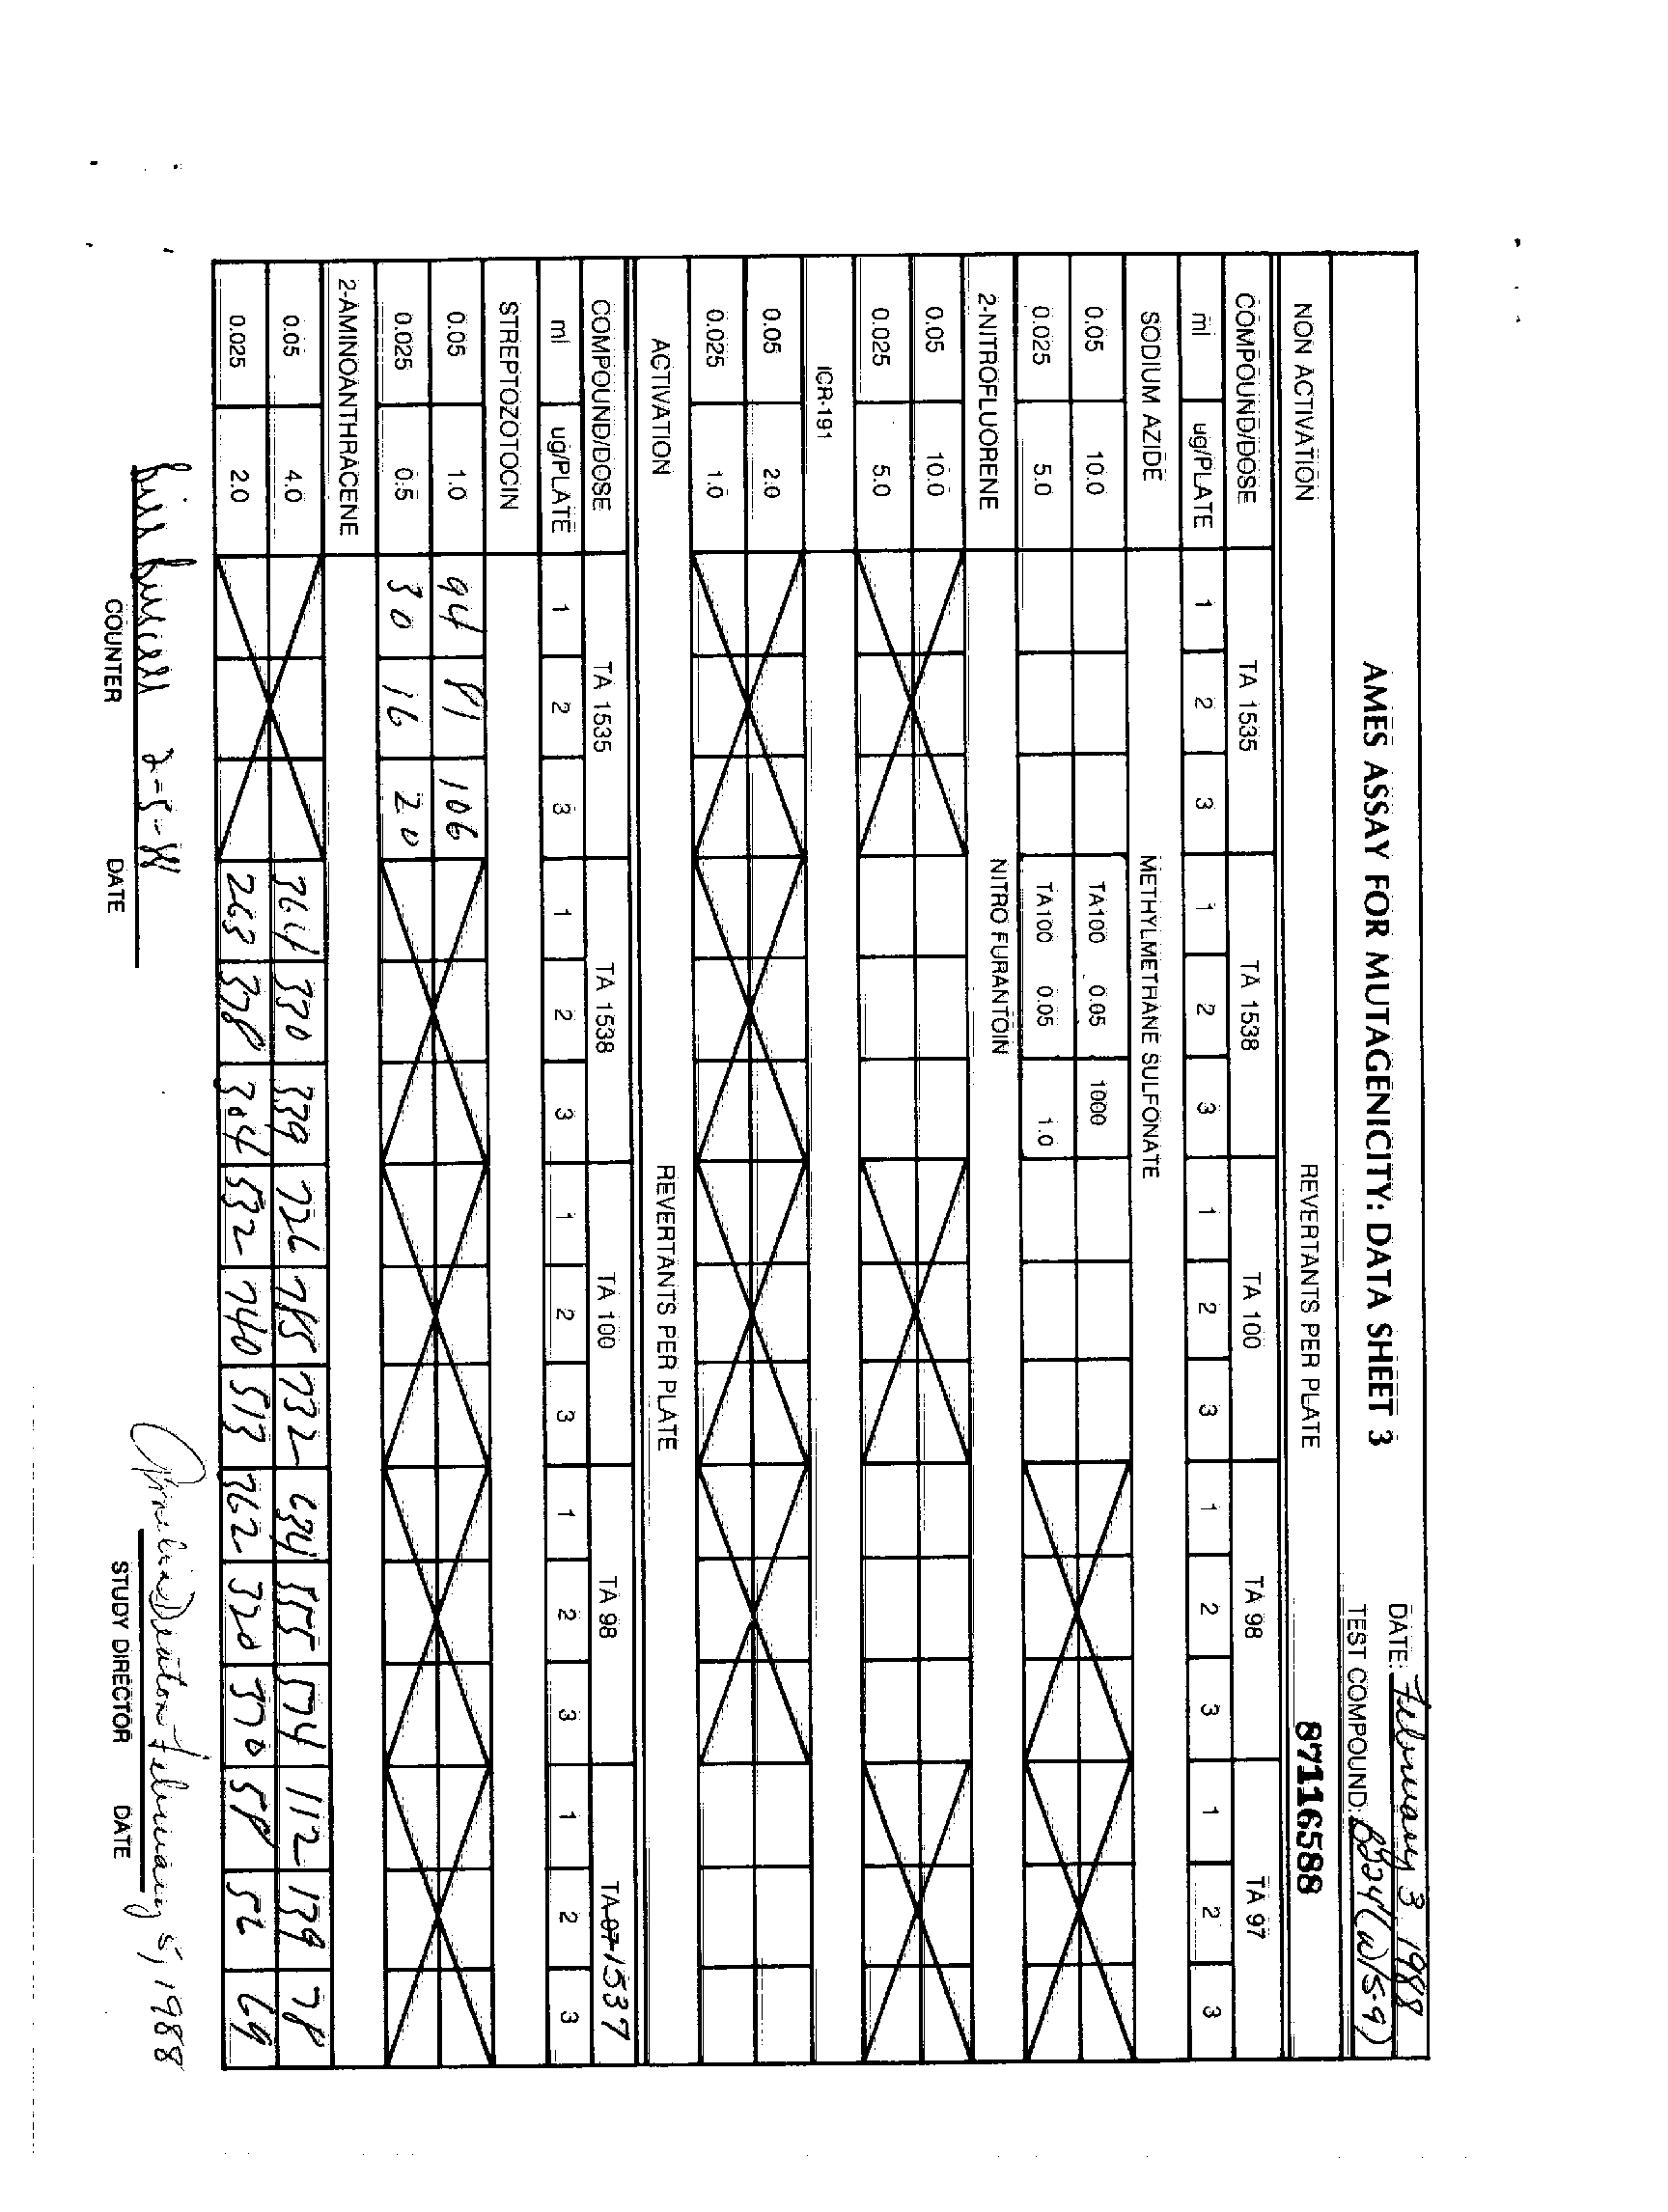 AMES ASSAY FOR MUTAGENICITY: DATA SHEET 3
DATE: February 3 1988
TEST COMPOUND: B324(W/S-9)
NON ACTIVATION REVERTANTS PER PLATE 87116588
COMPOUND/DOSE TA 1535 TA 1538 TA 100 TA 98 TA 97
ml ug/PLATE 1 2 3 1 2 3 1 2 3 1 2 3 1 2 3
SODIUM AZIDE METHYLMETHANE SULFONATE
0.05 10.0 TA100 0.05 1000
0.025 5.0 TA100 0.05 1.0
2-NITROFLUORENE NITRO FURANTOIN
0.05 10.0
0.025 5.0
ICR-191
0.05 2.0
0.025 1.0
ACTIVATION REVERTANTS PER PLATE
COMPOUND/DOSE TA 1535 TA 1538 TA 100 TA 98 TA 97 1537
ml ug/PLATE 1 2 3 1 2 3 1 2 3 1 2 3 1 2 3
STREPTOZOTOCIN
0.05 1.0 94 81 106
0.025 0.5 30 16 20
2-AMINOANTHRACENE
0.05 4.0 364 330 339 726 785 732 634 555 574 112 139 78
0.025 2.0 263 378 304 532 740 513 362 320 370 58 56 69
2-5-88 Deaton February 5, 1988
COUNTER DATE STUDY DIRECTOR DATE